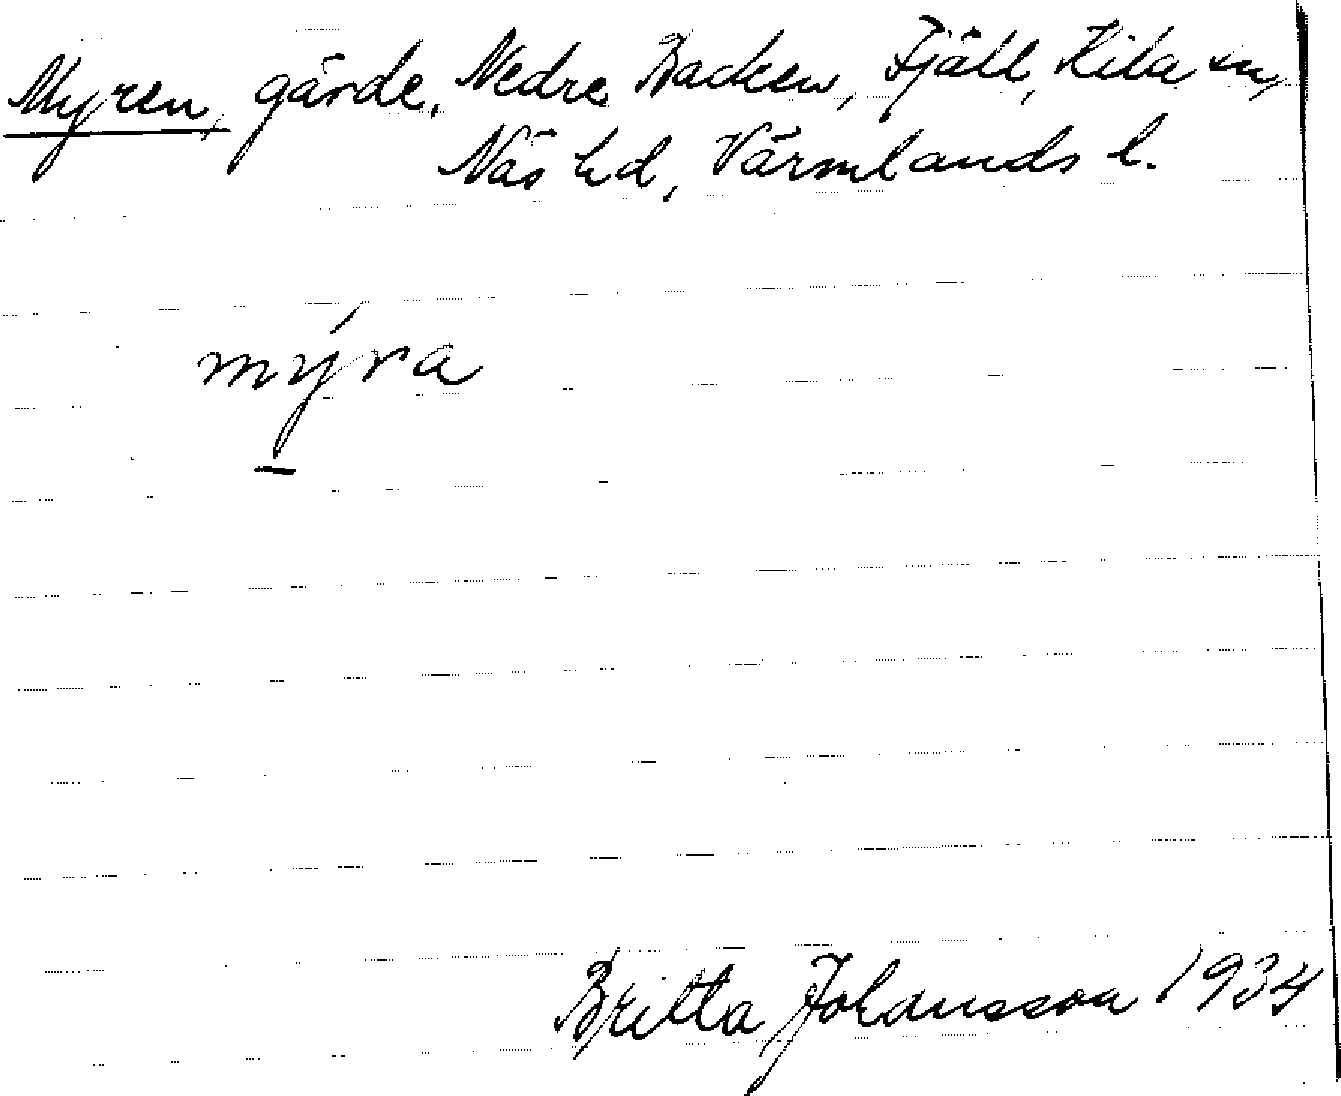 Myren, gärde, Nedre Backen, Fjäll, Kila sn,
Näs hd, Värmlands l.
mýra
Britta Johansson 1934